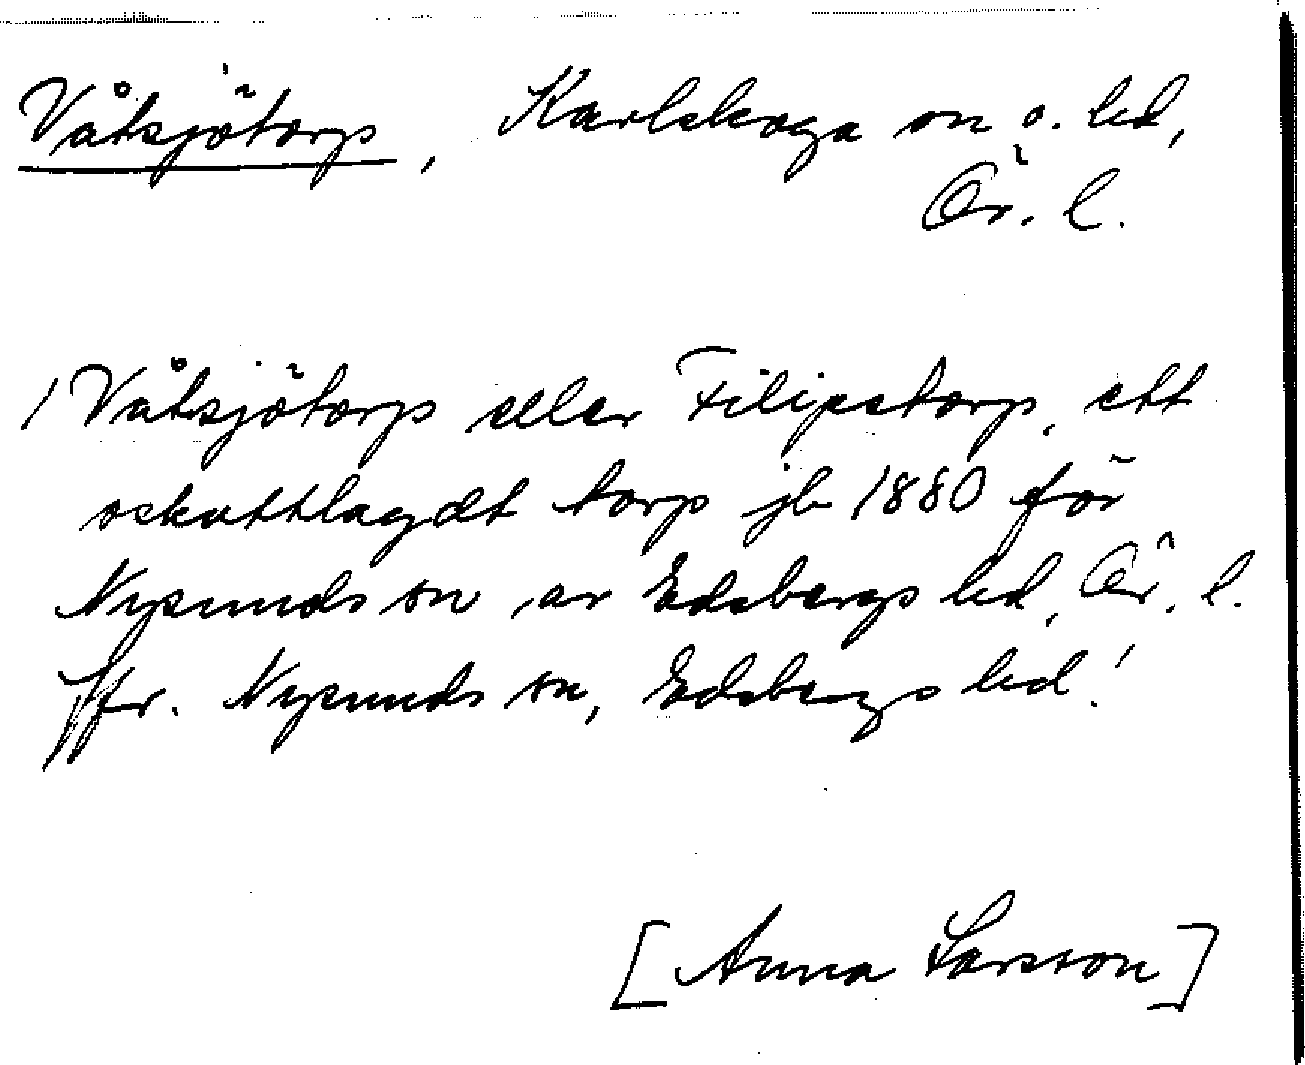 Våtsjötorp, Karlskoga sn o. hd,
Ör. l.
/ Våtsjötorp eller Filipstorp, ett
oskattlagdt torp jb 1880 för
Nysunds sn av Edsbergs hd, Ör. l.
Jfr. Nysunds sn, Edsbergs hd!
[Anna Larsson]